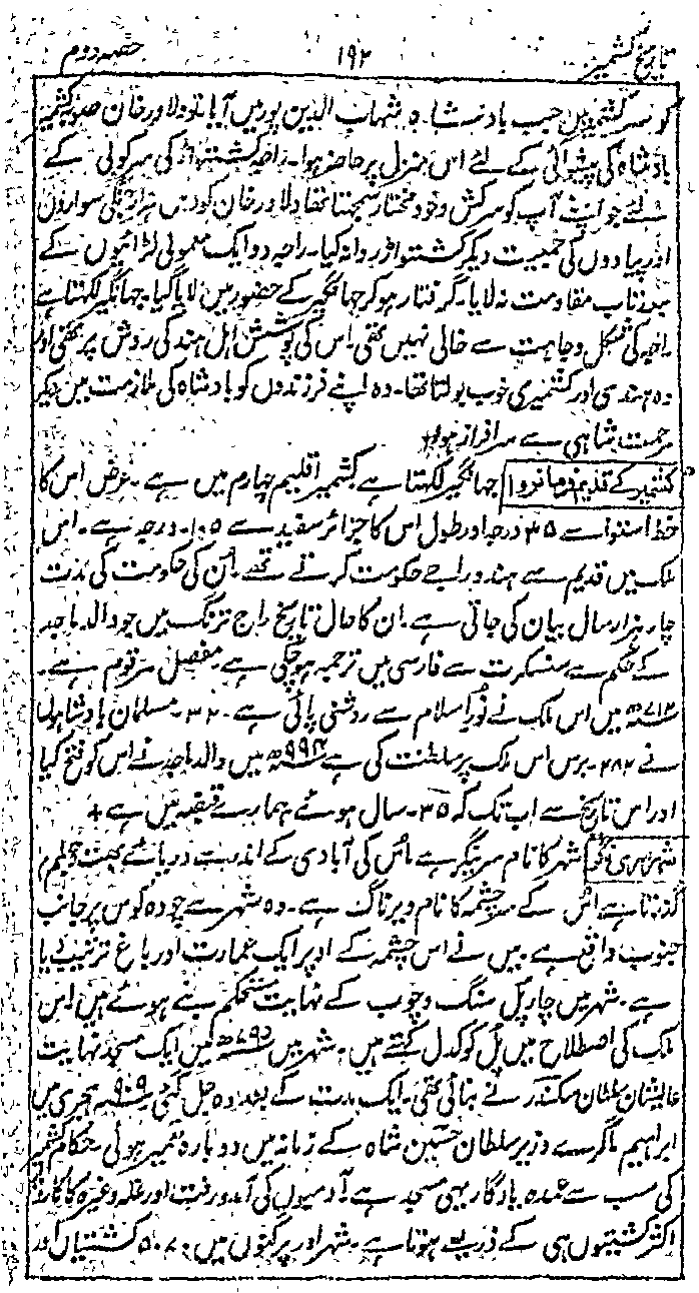 تاریخ کشمیر ۱۹۲ حصہ دوم
کو سیر کشمیر میں جب بادشاہ شہاب الدین پور میں آیا تو دلاور خان صوبہ کشمیر
بادشاہ کی پیشوائی کے لئے اس منزل پر حاضر ہوا۔ راجہ کشتواڑ کی سرکوبی کے
لئے جو اپنے آپ کو سرکش و خود مختار سمجہتا تھا دلاور خان کو دس ہزار جنگی سواروں
اور پیادوں کی جمعیت دیکر کشتواڑ روانہ کیا۔ راجہ دو ایک معمولی لڑائیوں کے
بعد تاب مقاومت نہ لایا۔ گرفتار ہو کر جہانگیر کے حضور میں لایا گیا۔ جہانگیر لکھتا ہے
راجہ کی شکل وجاہت سے خالی نہیں تھی۔ اس کی پوشش اہل ہند کی روش پر تھی اور
وہ ہندی اور کشمیری خوب بولتا تھا۔ وہ اپنے فرزندوں کو بادشاہ کی ملازمت میں دیکر
مرحمت شاہی سے سرافراز ہوا+
کشمیر کے قدیم فرمانروا جہانگیر لکھتا ہے کشمیر اقلیم چہارم میں ہے۔ عرض اس کا
خط استوا سے ۳۵ درجہ اور طول اس کا جزائر سفید سے ۱۰۵ درجہ ہے۔ اس
ملک میں قدیم سے ہندو راجے حکومت کرتے تھے۔ اُن کی حکومت کی مدت
چار ہزار سال بیان کی جاتی ہے۔ ان کا حال تاریخ راج ترنگ میں جو والد ماجد
کے حکم سے سنسکرت سے فارسی میں ترجمہ ہو چکی ہے مفصل مرقوم ہے۔
۷۱۲ھ میں اس ملک نے نُورِ اسلام سے روشنی پائی ہے۔ ۳۲۔ مسلمان بادشاہوں
نے ۲۸۲۔ برس اس ملک پر سلطنت کی ہے ۹۹۴ھ میں والد ماجد نے اس کو فتح کیا
اور اس تاریخ سے اب تک کہ ۳۵۔ سال ہوئے ہمارے قبضہ میں ہے +
شہر سری نگر شہر کا نام سرینگر ہے اُس کی آبادی کے اندر سے دریائے بہت و جہلم
گذرتا ہے اُس کے سرچشمہ کا نام ویرناگ ہے۔ وہ شہر سے چودہ کوس پر جانب
جنوب واقع ہے۔ میں نے اس چشمہ کے اوپر ایک عمارت اور باغ ترتیب دیا
ہے۔ شہر میں چار پُل سنگ و چوب کے نہایت مستحکم بنے ہوئے ہیں اس
ملک کی اصطلاح میں پُل کو کدل کہتے ہیں۔ شہر میں ۷۹۵ھ میں ایک مسجد نہایت
عالیشان سلطان سکندر نے بنائی تھی۔ ایک مدت کے بعد وہ جل گئی ۹۰۹ ہجری میں
ابراہیم ماگرے وزیر سلطان حسین شاہ کے زمانہ میں دوبارہ تعمیر ہوئی۔ حکام کشمیر
کی سب سے عمدہ یادگار یہی مسجد ہے۔ آدمیوں کی آمد و رفت اور غلہ وغیرہ کا کارخانہ
اکثر کشتیوں ہی کے ذریعہ ہوتا ہے۔ شہر اور پرگنوں میں ۵۰۷۰ کشتیاں اور